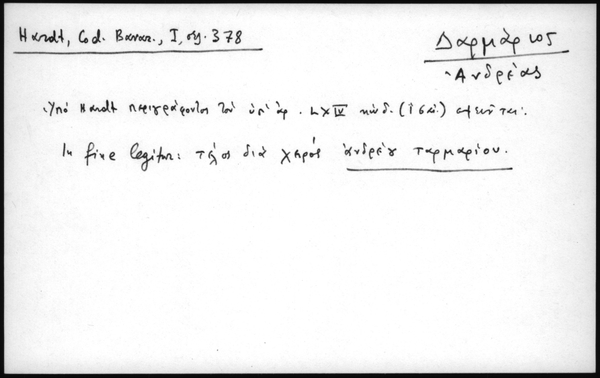 Hardt, Cod. Bavar., I, σς. 378
Δαρμάριος
Ἀνδρέας
Ὑπὸ Hardt περιγράφοντος τὸν ὑπ' ἀρ. LXIV κώδ. (ΙϚ αἰ.)
In fine legitur: τέλος διὰ χειρός ἀνδρέȣ ταρμαρίου.